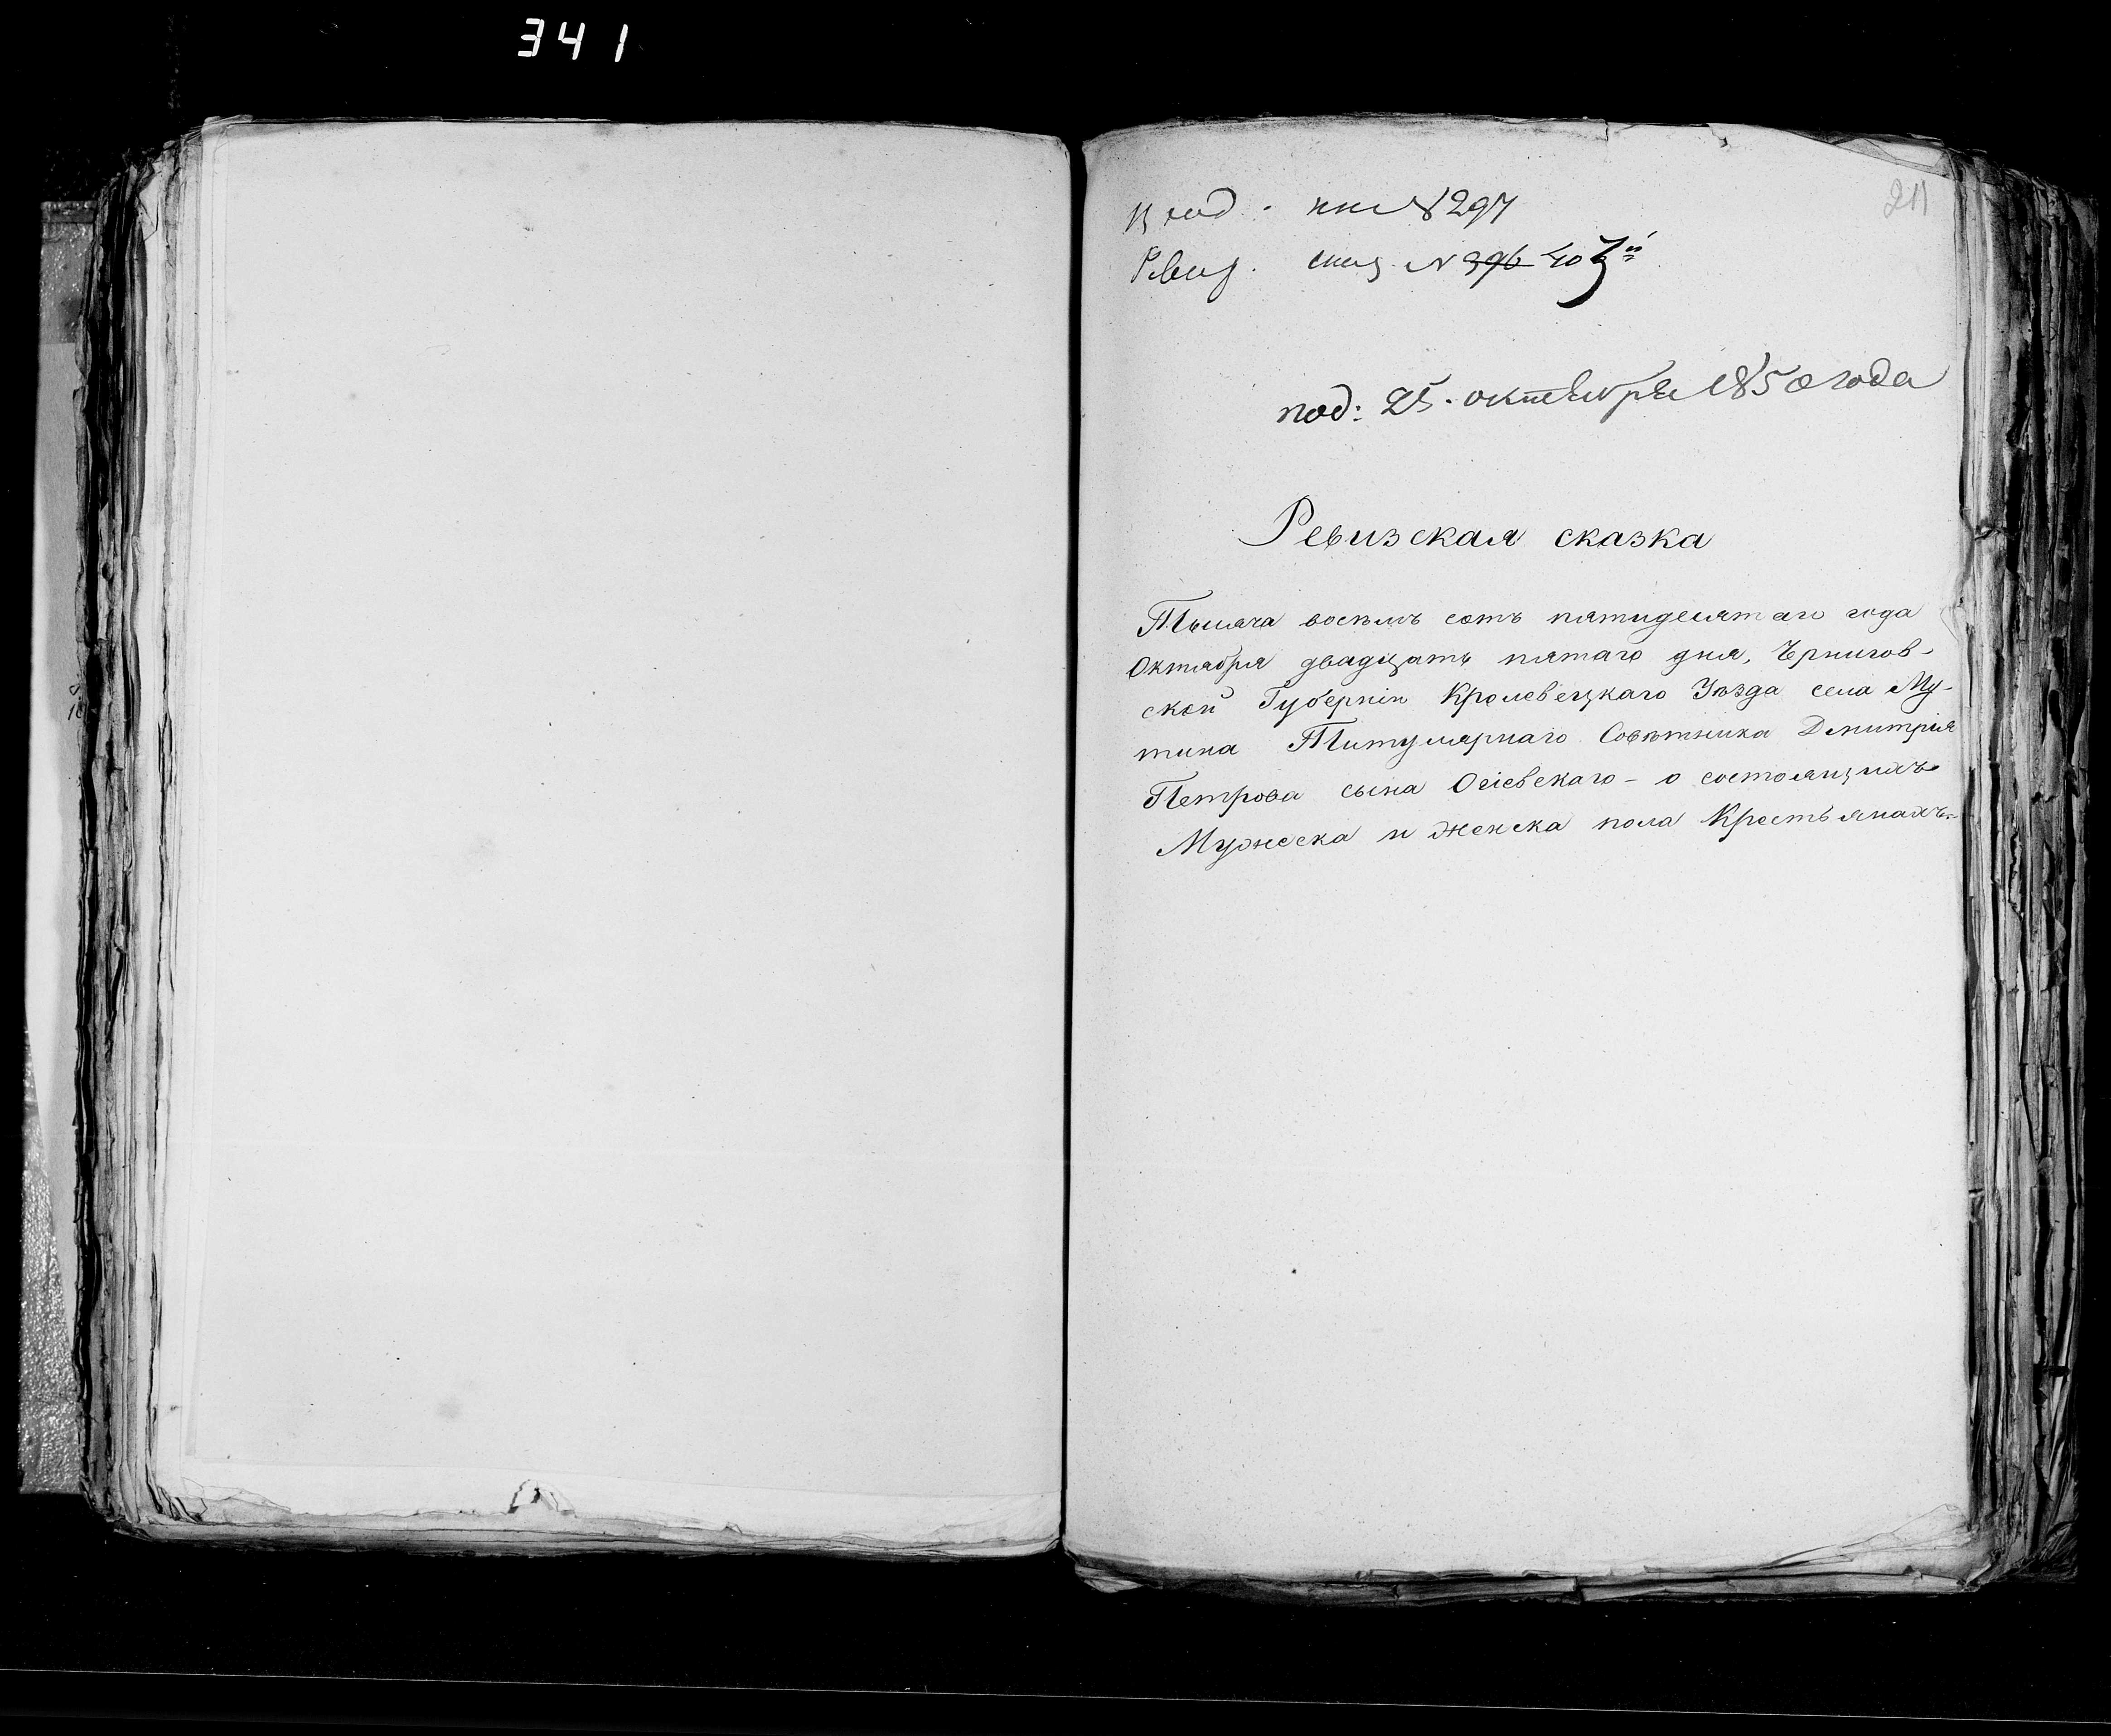 341
211
Вход. кни № 297
Ревиз. сказ. № 396 403
под: 25. октября 1850 года
Ревизская сказка
Тысяча восемь сотъ пятидесятаго года
Октября двадцать пятаго дня, Чернигов-
ской Губерніи Кролевецкаго Уѣзда села Му-
тина Титулярнаго Совѣтника Дмитрія
Петрова сына Огіевскаго - о состоящихъ
Мужеска и женска пола Крестьянахъ.